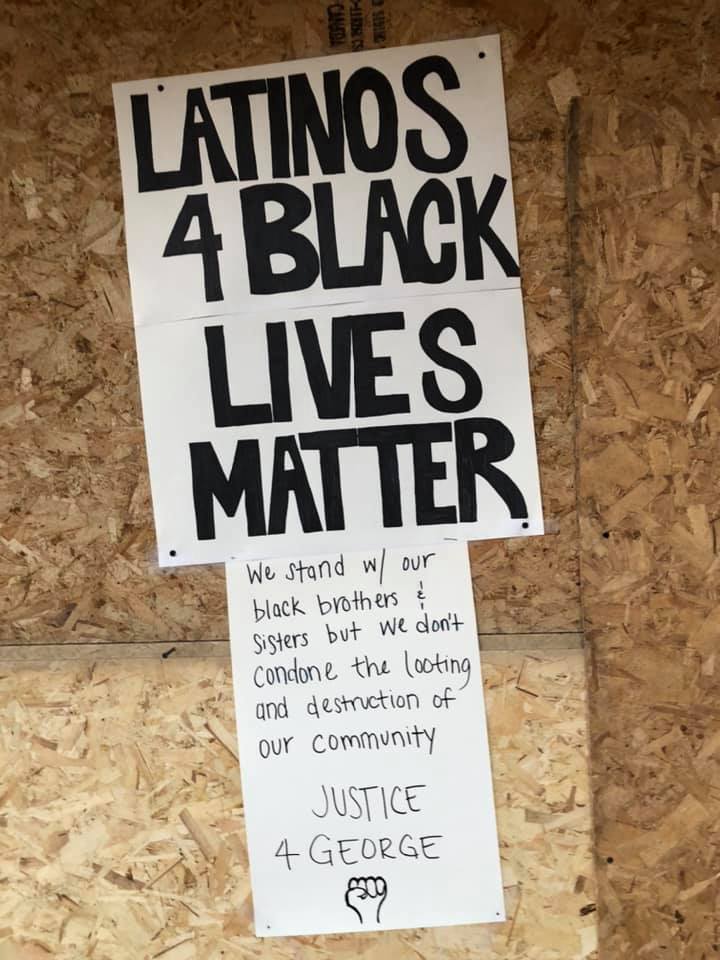 LATINOS
4 BLACK
LIVES
MATTER
We stand w/ our
black brothers &
sisters but we don't
condone the looting
and destruction of
our community
JUSTICE
4 GEORGE